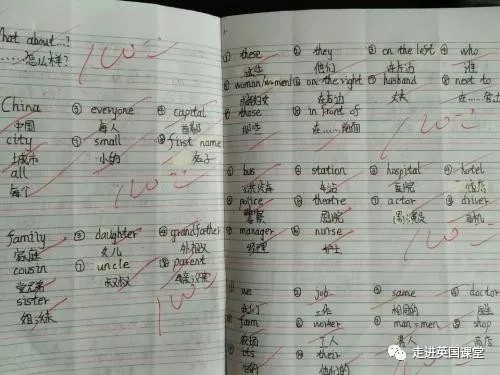 What about...?
......怎么样?
100
China ⑤ everyone ⑧ capital
中国 每人 首都
city ⑦ small ⑨ first name
城市 小的 名字
all
每个
100
family ③ daughter ⑥ grandfather
家庭 女儿 外祖父
cousin ⑦ uncle ⑧ parent
堂兄弟 叔叔
sister
姐妹
100
① these ② they ③ on the left ④ who
这些 他们 在左边 谁
woman/women on the right ⑦ husband next to
在右边 丈夫
those in front of
那些 在......前面
100
① bus ② station ③ hospital ④ hotel
公共汽车 车站 医院
police theatre ⑦ actor driver
警察 剧院 男演员 司机
manager nurse
经理 护士
100
we job same doctor
我们 工作 相同的 医生
farm worker man-men shop
农场 工人 男人 商店
its their
它的 他们的
走进英国课堂